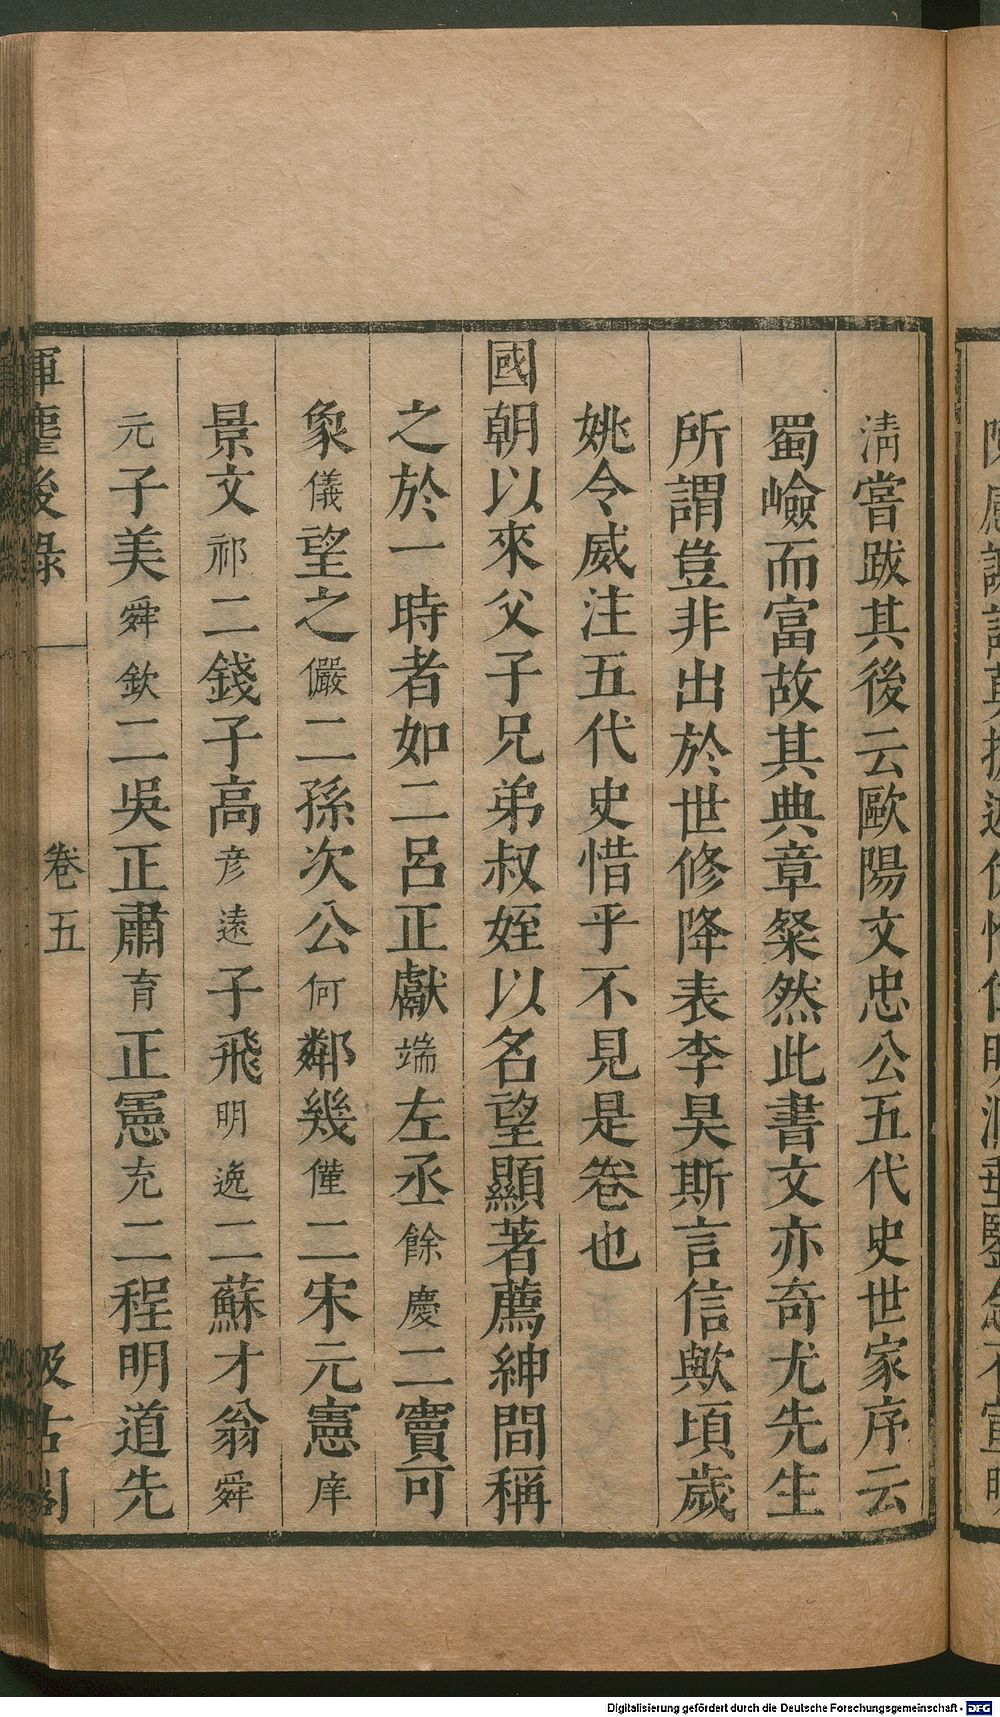 清嘗跋其後云歐陽文忠公五代史世家序云
蜀嶮而富故其典章粲然此書文亦奇尤先生
所謂豈非出於世修降表李昊斯言信歟頃歲
姚令威注五代史惜乎不見是卷也
國朝以來父子兄弟叔姪以名望顯著薦紳間稱
之於一時者如二呂正獻端左丞餘慶二竇可
象儀望之儼二孫次公何鄰幾僅二宋元憲庠
景文祁二錢子高彥遠子飛明逸二蘇才翁舜
元子美舜欽二吳正肅育正憲充二程明道先
揮麈後錄 卷五 汲古閣
Digitalisierung gefördert durch die Deutsche Forschungsgemeinschaft - DFG